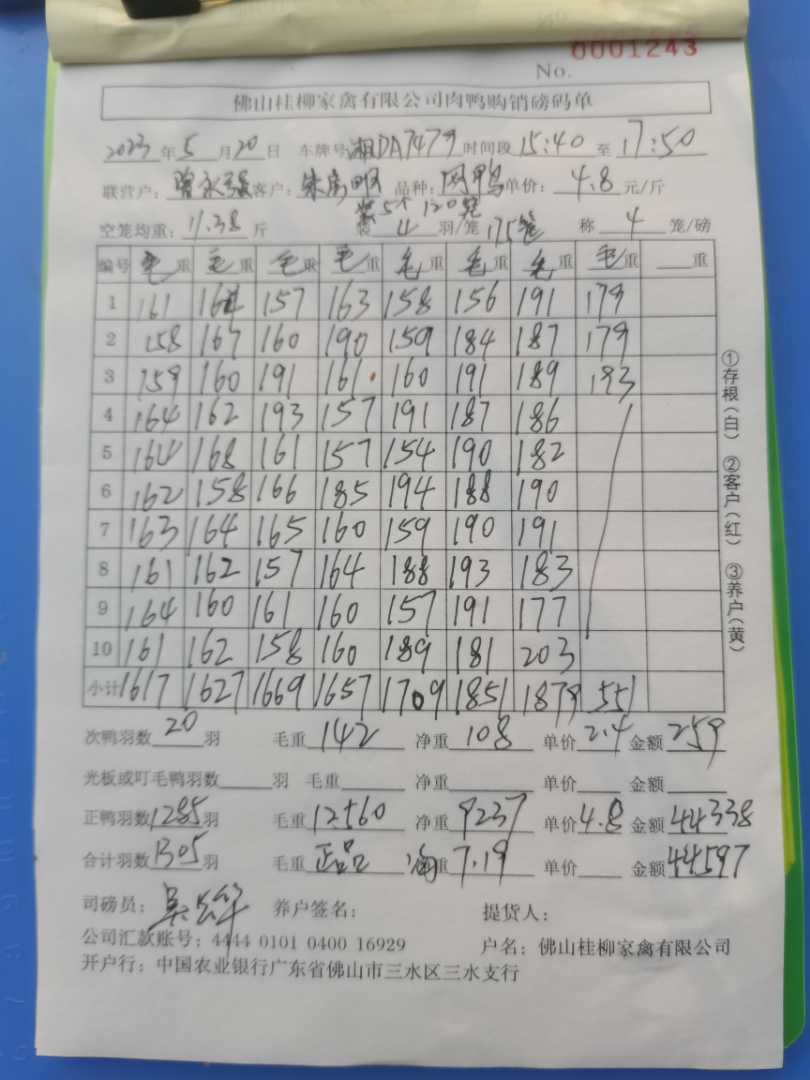 No. 0001243
佛山桂柳家禽有限公司肉鸭购销磅码单
2023年5月20日 车牌号湘DA7479时间段15:40至17:50
联营户：曾永强客户：朱 品种：网鸭单价：4.8元/斤
装5个120笼
空笼均重：11.38斤 装4羽/笼175笼 称4笼/磅
编号 毛重 毛重 毛重 毛重 毛重 毛重 毛重 毛重 重
1 161 164 157 163 158 156 191 179
2 158 167 160 190 159 184 187 179
3 159 160 191 161 160 191 189 193
4 164 162 193 157 191 187 186
5 164 168 161 157 154 190 182
6 162 158 166 185 194 188 190
7 163 164 165 160 159 190 191
8 161 162 157 164 188 193 183
9 164 160 161 160 157 191 177
10 161 162 158 160 189 181 203
小计 1617 1627 1669 1657 1709 1851 1879 551
次鸭羽数20羽 毛重142 净重108 单价2.4 金额259
光板或叮毛鸭羽数 羽 毛重 净重 单价 金额
正鸭羽数1285羽 毛重12560 净重9237 单价4.8 金额44338
合计羽数1305羽 毛重正品 重7.19 单价 金额44597
司磅员：吴 养户签名： 提货人：
公司汇款账号：4444 0101 0400 16929 户名：佛山桂柳家禽有限公司
开户行：中国农业银行广东省佛山市三水区三水支行
①存根（白） ②客户（红） ③养户（黄）